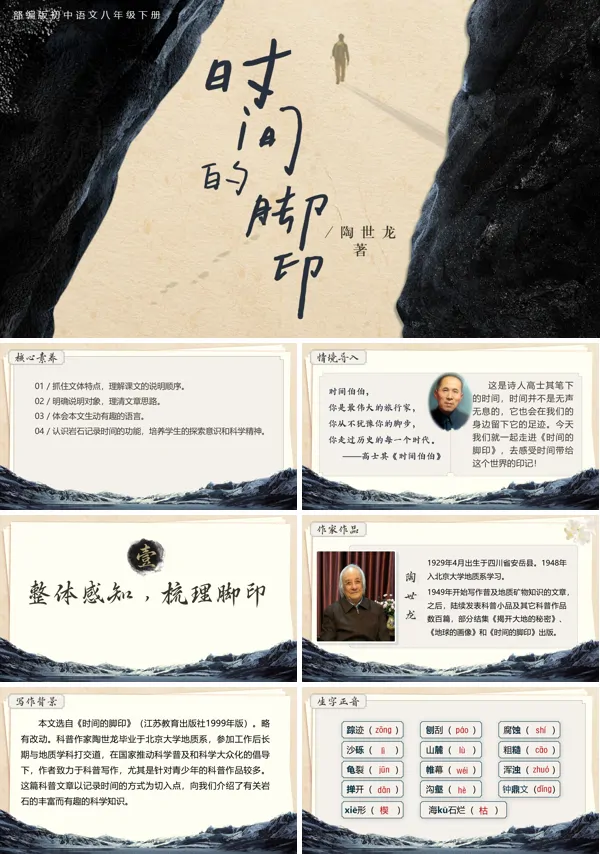 部编版初中语文八年级下册
时间的脚印
/陶世龙
著
核心素养
01 / 抓住文体特点，理解课文的说明顺序。
02 / 明确说明对象，理清文章思路。
03 / 体会本文生动有趣的语言。
04 / 认识岩石记录时间的功能，培养学生的探索意识和科学精神。
情境导入
时间伯伯，
你是最伟大的旅行家，
你从不犹豫你的脚步，
你走过历史的每一个时代。
——高士其《时间伯伯》
这是诗人高士其笔下
的时间，时间并不是无声
无息的，它也会在我们的
身边留下它的足迹。今天
我们就一起走进《时间的
脚印》，去感受时间带给
这个世界的印记！
壹
整体感知，梳理脚印
作家作品
陶世龙
1929年4月出生于四川省安岳县。1948年
入北京大学地质系学习。
1949年开始写作普及地质矿物知识的文章，
之后，陆续发表科普小品及其它科普作品
数百篇，部分结集《揭开大地的秘密》、
《地球的画像》和《时间的脚印》出版。
写作背景
本文选自《时间的脚印》（江苏教育出版社1999年版）。略
有改动。科普作家陶世龙毕业于北京大学地质系，参加工作后长
期与地质学科打交道，在国家推动科学普及和科学大众化的倡导
下，作者致力于科普写作，尤其是针对青少年的科普作品较多。
这篇科普文章以记录时间的方式为切入点，向我们介绍了有关岩
石的丰富而有趣的科学知识。
生字正音
踪迹（ zōng） 刨刮（ páo ） 腐蚀（ shí ）
沙砾（ lì ） 山麓（ lù ） 粗糙（ cāo ）
龟裂（ jūn ） 帷幕（ wéi ） 浑浊（ zhuó ）
掸开（ dǎn ） 沟壑（ hè ） 钟鼎文（dǐng）
xiē形（ 楔 ） 海kū石烂（ 枯 ）